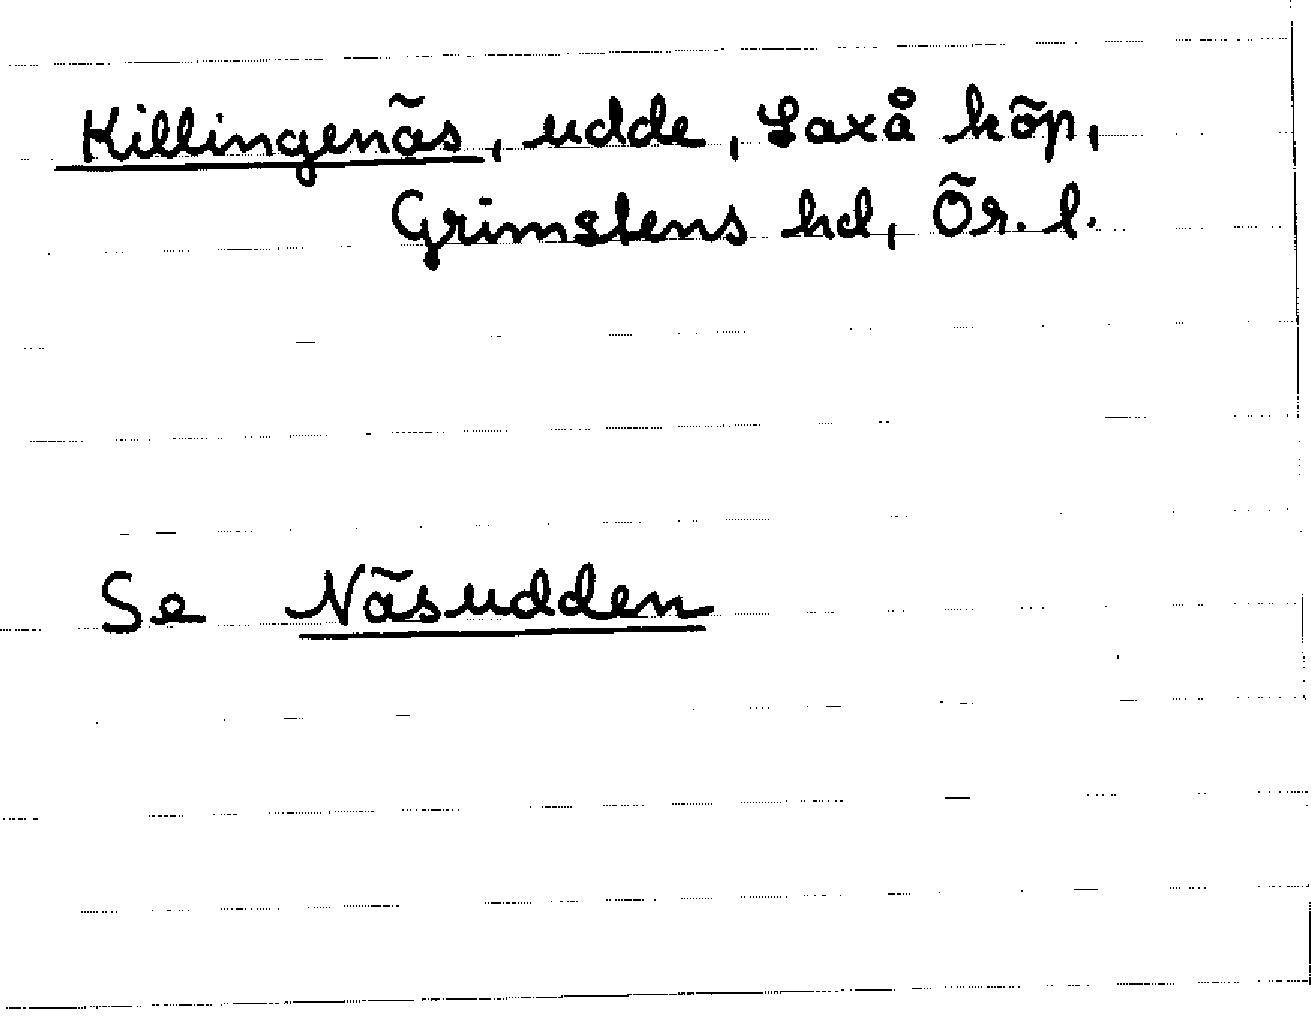 Killingenäs, udde, Laxå köp,
Grimstens hd, Ör. l.
Se Näsudden